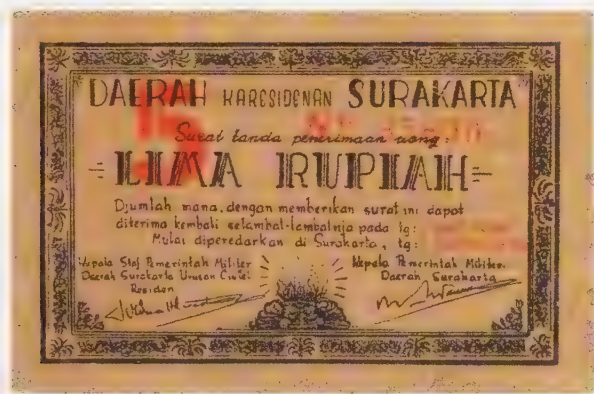 DAERAH KARESIDENAN SURAKARTA
5
Surat tanda penerimaan uang:
=LIMA RUPIAH=
Djumlah mana, dengan memberikan surat ini dapat
diterima kembali selambat-lambatnja pada tg:
Mulai diperedarkan di Surakarta, tg:
Kepala Staf Pemerintah Militer
Daerah Surakarta Urusan Civiel
Residen
Kepala Pemerintah Militer.
Daerah Surakarta